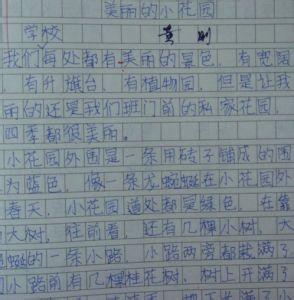 美丽的小花园
学校 黄刚
我们每处都有美丽的景色。有宽阔
，有升旗台，有植物园。但是让我
丽的还是我们班门前的私家花园，
四季都很美丽。
小花园外围是一条用砖子铺成的围
为蓝色，像一条龙蜿蜒在小花园外
春天，小花园道处都是绿色，在
大树。往前看，还有几棵小树。大
蜿蜒的一条小路，小路两旁都栽满了
小路前有几棵桂花树，树上开满了